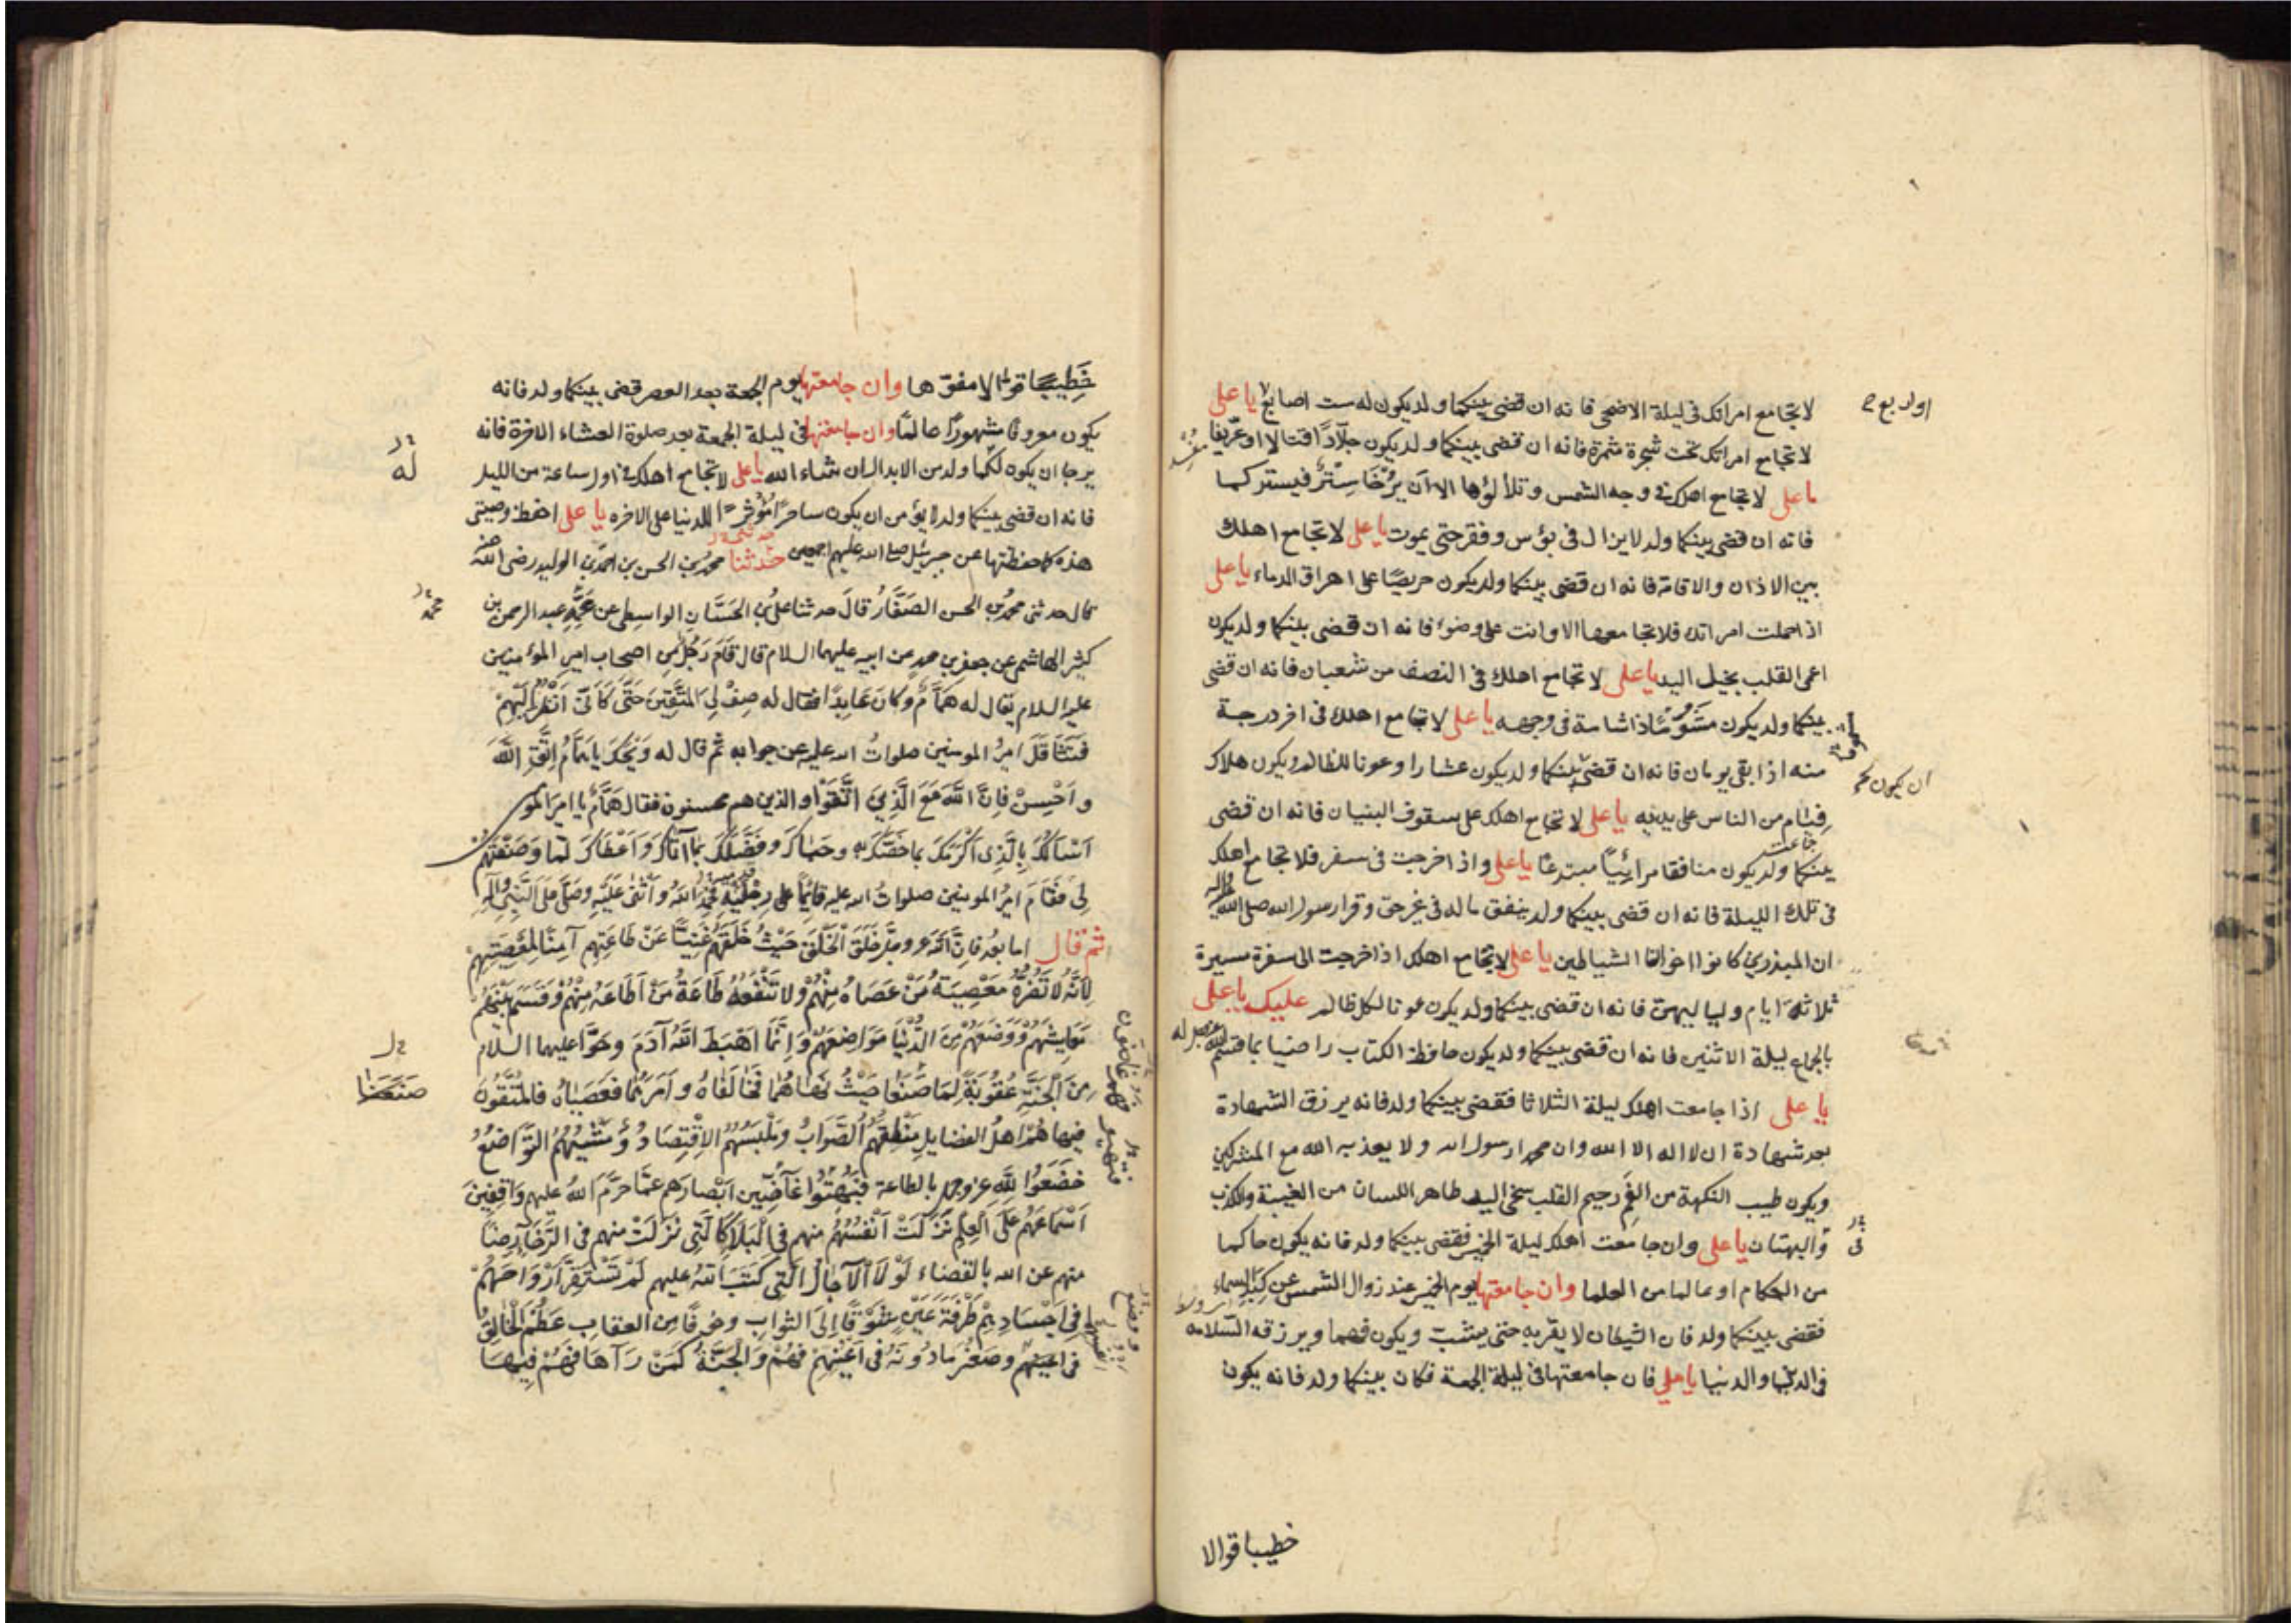 لا تجامع امراتك فى ليلة الاضحى فانه ان قضى بينكما ولد يكون له ست اصابع يا على
لا تجامع امراتك تحت شجرة مثمرة فانه ان قضى بينكما ولد يكون جلّادًا قتالا او عرّيفا
يا على لا تجامع اهلك فى وجه الشمس وتلألؤها الا ان يُرْخَا سِتْرٌ فيستركما
فانه ان قضى بينكما ولد لا يزال فى بؤس وفقر حتى يموت يا على لا تجامع اهلك
بين الاذان والاقامة فانه ان قضى بينكما ولد يكون حريصًا على اهراق الدماء يا على
اذا حملت امراتك فلا تجامعها الا وانت على وضوء فانه ان قضى بينكما ولد يكون
اعمى القلب بخيل اليد يا على لا تجامع اهلك فى النصف من شعبان فانه ان قضى
بينكما ولد يكون مَشْؤُمًا ذا شامة فى وجهه يا على لا تجامع اهلك فى اخر درجة
منه اذا بقى يومان فانه ان قضى بينكما ولد يكون عشارا وعونا للظالم ويكون هلاك
فِئام من الناس على يديه يا على لا تجامع اهلك على سقوف البنيان فانه ان قضى
بينكما ولد يكون منافقا مرائيًا مبتدعًا يا على واذا خرجت فى سفر فلا تجامع اهلك
فى تلك الليلة فانه ان قضى بينكما ولد ينفق ماله فى غير حق وقرا رسول الله صلى الله عليه واله
ان المبذرين كانوا اخوان الشياطين يا على لا تجامع اهلك اذا خرجت الى سفرة مسيرة
ثلاثة ايام ولياليهن فانه ان قضى بينكما ولد يكون عونا لكل ظالم عليك يا على
بالجماع ليلة الاثنين فانه ان قضى بينكما ولد يكون حافظ الكتاب راضيا بما قسم الله عز وجل له
يا على اذا جامعت اهلك ليلة الثلاثا فقضى بينكما ولد فانه يرزق الشهادة
بعد شهادة ان لا اله الا الله وان محمدا رسول الله ولا يعذبه الله مع المشركين
ويكون طيب النكهة من الفَمِ رحيم القلب سخى اليد طاهر اللسان من الغيبة والكذب
والبهتان يا على وان جامعت اهلك ليلة الخميس فقضى بينكما ولد فانه يكون حاكما
من الحكام او عالما من العلما وان جامعتها يوم الخميس عند زوال الشمس عن كبد السماء
فقضى بينكما ولد فان الشيطان لا يقربه حتى يشب ويكون فهما ويرزقه السّلامه
فى الدين والدنيا يا على فان جامعتها فى ليلة الجمعة فكان بينكما ولد فانه يكون
خطيبا قوالا
ان يكون
خَطِيبًا قوالا مفوّها وان جامعتها يوم الجمعة بعد العصر قضى بينكما ولد فانه
يكون معروفا مشهورًا عالمًا وان جامعتها فى ليلة الجمعة بعد صلوة العشاء الاخرة فانه
يرجا ان يكون لكما ولد من الابدال ان شاء الله يا على لا تجامع اهلك فى اول ساعة من الليل
فانه ان قضى بينكما ولد لا يؤمن ان يكون ساحرًا مُؤْثِرًا للدنيا على الاخره يا على احفظ وصيتى
هذه كما حفظتها عن جبرئيل صلوات الله عليهم اجمعين حدثنا محمد بن الحسن بن احمد بن الوليد رضى الله عنه
قال حدثنى محمد بن الحسن الصَفَّارُ قالَ حدثنا على بن الحَسَّانِ الواسِطى عن عَمِّهِ عبد الرحمن بن
كثير الهاشمى عن جعفر بن محمد عن ابيه عليهما السلام قال قَامَ رَجُلٌ مِن اصحاب امير المؤمنين
عليه السلام يقال له هَمَّام وكان عَابِدًا فقال له صِفْ لِىَ المُتَّقِينَ حَتَّى كَاَنِّى اَنْظُرُ اِلَيْهِمْ
فَتَثَاقَلَ اميرُ المومنين صلواتُ الله عليه عن جوابه ثم قال له وَيْحَكَ يا همَّامُ اِتَّقِ اللَّهَ
واَحْسِنْ فاِنَّ اللَّهَ مَعَ الَّذِينَ اتَّقَوْا والذين هم محسنون فقال هَمَّامٌ يا اميرَ المومنين
اَسْاَلُكَ بِالَّذِى اَكْرَمَكَ بما خصّكَ بِهِ وحَبَاكَ وفَضَّلَكَ بمَا آتَاكَ وَاَعْطَاكَ لَمَّا وَصَفْتَهُمْ
لِى فَقَامَ اميرُ المومنين صلواتُ الله عليه قائِمًا على رِجْلَيْهِ فَحَمِدَ اللهَ وَاَثْنَى عَلَيْهِ وصَلَّى عَلَى النَّبِىِّ وآلِهِ
ثم قال اما بعد فاِنَّ الله عز وجلّ خَلَقَ الخَلْقَ حَيْثُ خَلَقَهُمْ غَنِيًّا عَنْ طاعَتِهِم آمِنًا لِمَعْصِيَتِهِمْ
لِاَنَّهُ لا تَضُرُّهُ مَعْصِيَةُ مَنْ عَصَاهُ مِنْهُمْ ولا تَنْفَعُهُ طَاعَةُ مَنْ اَطَاعَهُ مِنْهُمْ وقَسَمَ بَيْنَهُمْ
مَعَايِشَهُمْ وَوَضَعَهُمْ مِنَ الدُّنْيَا مَوَاضِعَهُمْ وَاِنَّمَا اَهْبَطَ اللهُ آدَمَ وحَوَّا عليهما السلام
مِنَ الجَنَّةِ عُقُوبَةً لِمَا صَنَعَا حَيْثُ نَهَاهُمَا فَخَالَفَاهُ وأَمَرَهُمَا فَعَصَيَاهُ فالمُتَّقُونَ
فيها هُمْ اهلُ الفضايل مَنْطِقُهُم الصَّوَابُ ومَلْبَسُهُمُ الاِقْتِصَادُ وَمَشْيُهُمُ التَّوَاضُعُ
خَضَعُوا لِلَّهِ عز وجل بالطاعة فَبُهِتُوا غَاضِّينَ اَبْصَارَهم عمَّا حرَّمَ اللهُ عليهم وَاقِفِينَ
اَسْمَاعَهُم عَلَى العِلْمِ نَزَلَتْ اَنْفُسُهُمْ منهم فى البَلَا كَالَّتِى نَزَلَتْ منهم فى الرَّخَاءِ رِضًا
منهم عن الله بالقضاء لَوْلَا الْآجَالُ الَّتِى كَتَبَ اللهُ عليهم لَمْ تَسْتَقِرَّ اَرْوَاحُهُمْ
فى اَجْسَادِهِمْ طَرْفَةَ عَيْنٍ شَوْقًا اِلَى الثوابِ وخوفًا مِنَ العقابِ عَظُمَ الْخَالِقُ
فى اعينهم وصَغُرَ مادُونَهُ فى اَعْيُنِهِمْ فَهُمْ وَالْجَنَّةُ كَمَنْ رَآهَا فَهُمْ فِيهَا
له
محمد
صنعنا